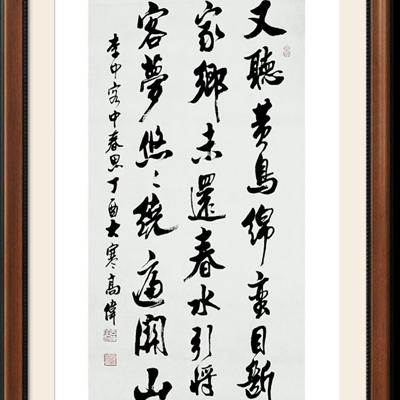 又聽黄鳥綿蠻目斷
家鄉未還春水引將
客夢悠〻繞遍關山
李中客中春思丁酉大寒高偉